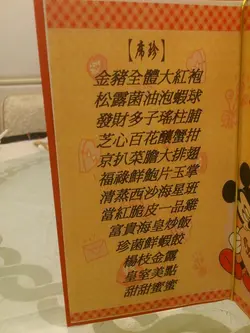 【席珍】
金豬全體大紅袍
松露菌油泡蝦球
發財多子瑤柱脯
芝心百花釀蟹拑
京扒菜膽大排翅
福祿鮮鮑片玉掌
清蒸西沙海星班
當紅脆皮一品雞
富貴海皇炒飯
珍菌鮮蝦餃
楊枝金露
皇室美點
甜甜蜜蜜